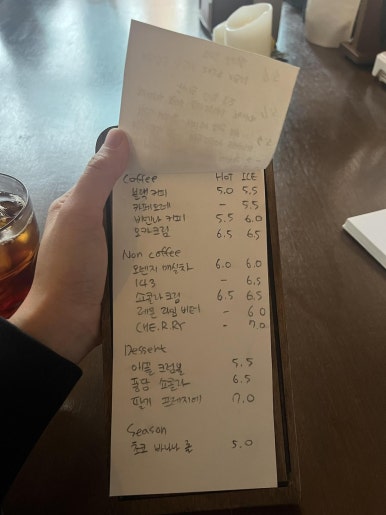 Coffee HOT ICE
블랙커피 5.0 5.5
카페오레 - 5.5
비엔나 커피 5.5 6.0
모카크림 6.5 6.5
Non coffee
오렌지 매실차 6.0 6.0
143 - 6.5
쇼콜라 크림 6.5 6.5
레몬 라임 비터 - 6.0
CHE.R.RY - 7.0
Dessert
애플 크럼블 5.5
쇼콜라 6.5
딸기 프레지에 7.0
Season
초코 바나나 롤 5.0